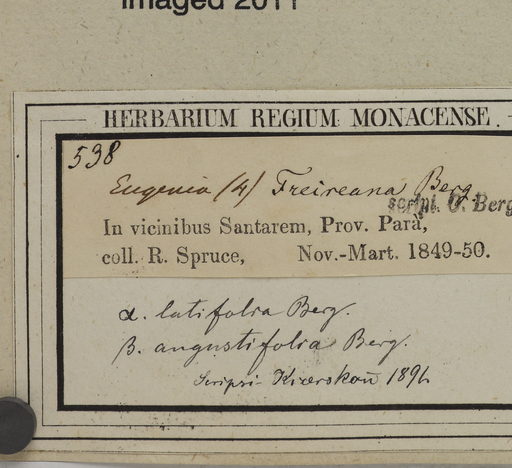 Imaged 2011
HERBARIUM REGIUM MONACENSE.
538
Eugenia (4) Freireana Berg.
script. O. Berg
In vicinibus Santarem, Prov. Parà,
coll. R. Spruce, Nov.-Mart. 1849-50.
α. latifolia Berg.
β. angustifolia Berg.
Scripsi Kiærskou